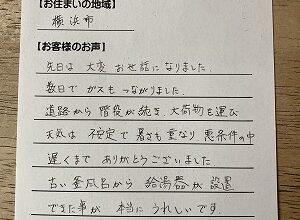 【お住まいの地域】
横浜市
【お客様のお声】
先日は 大変 お世話になりました
数日で ガスも つながりました
道路から 階段が続き、大荷物も運び
天気は 不安定で 暑さも重なり、悪条件の中
遅くまで ありがとうございました
古い 釜風呂から 給湯器が 設置
できた事が 本当に うれしいです.